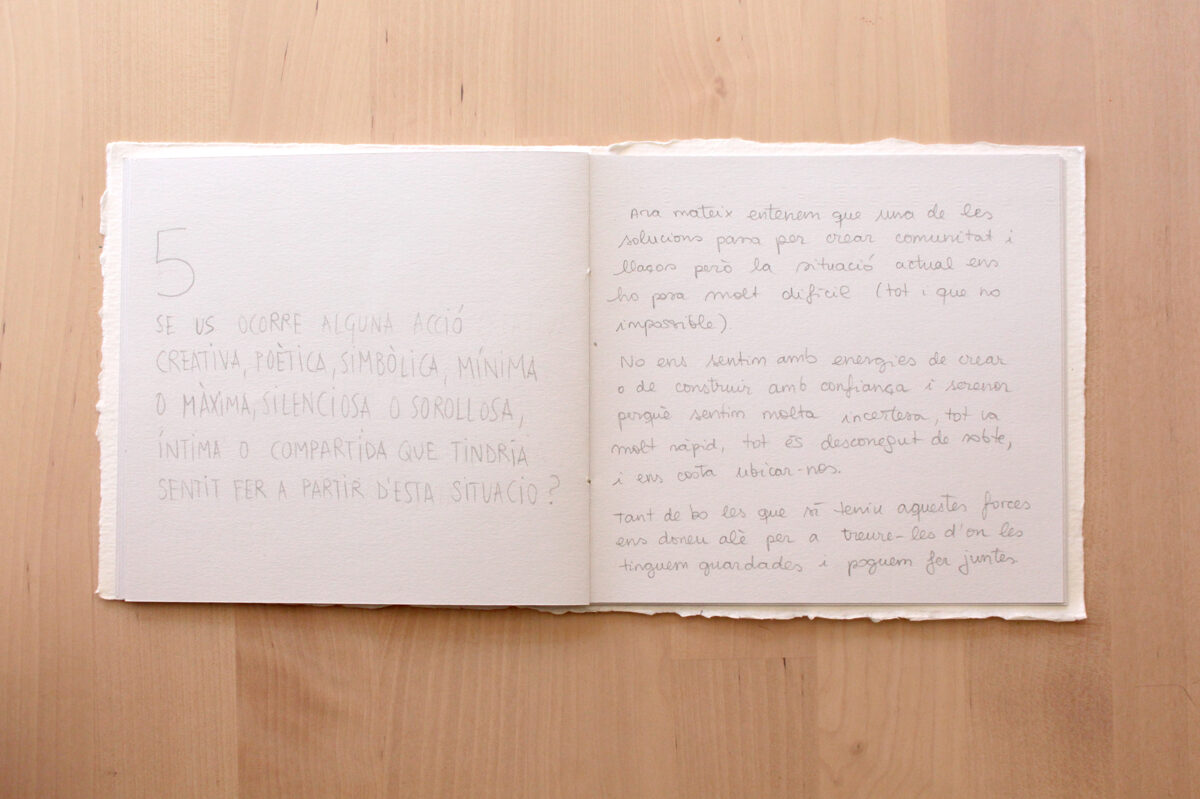 5
SE US OCORRE ALGUNA ACCIÓ
CREATIVA, POÈTICA, SIMBÒLICA, MÍNIMA
O MÀXIMA, SILENCIOSA O SOROLLOSA,
ÍNTIMA O COMPARTIDA QUE TINDRIA
SENTIT FER A PARTIR D'ESTA SITUACIO?
Ara mateix entenem que una de les
solucions passa per crear comunitat i
llaços però la situació actual ens
ho posa molt difícil (tot i que no
impossible).
No ens sentim amb energies de crear
o de construir amb confiança i serenor
perquè sentim molta incertesa, tot va
molt ràpid, tot és desconegut de sobte,
i ens costa ubicar-nos.
Tant de bo les que sí teniu aquestes forces
ens doneu alè per a treure-les d'on les
tinguem guardades i poguem fer juntes